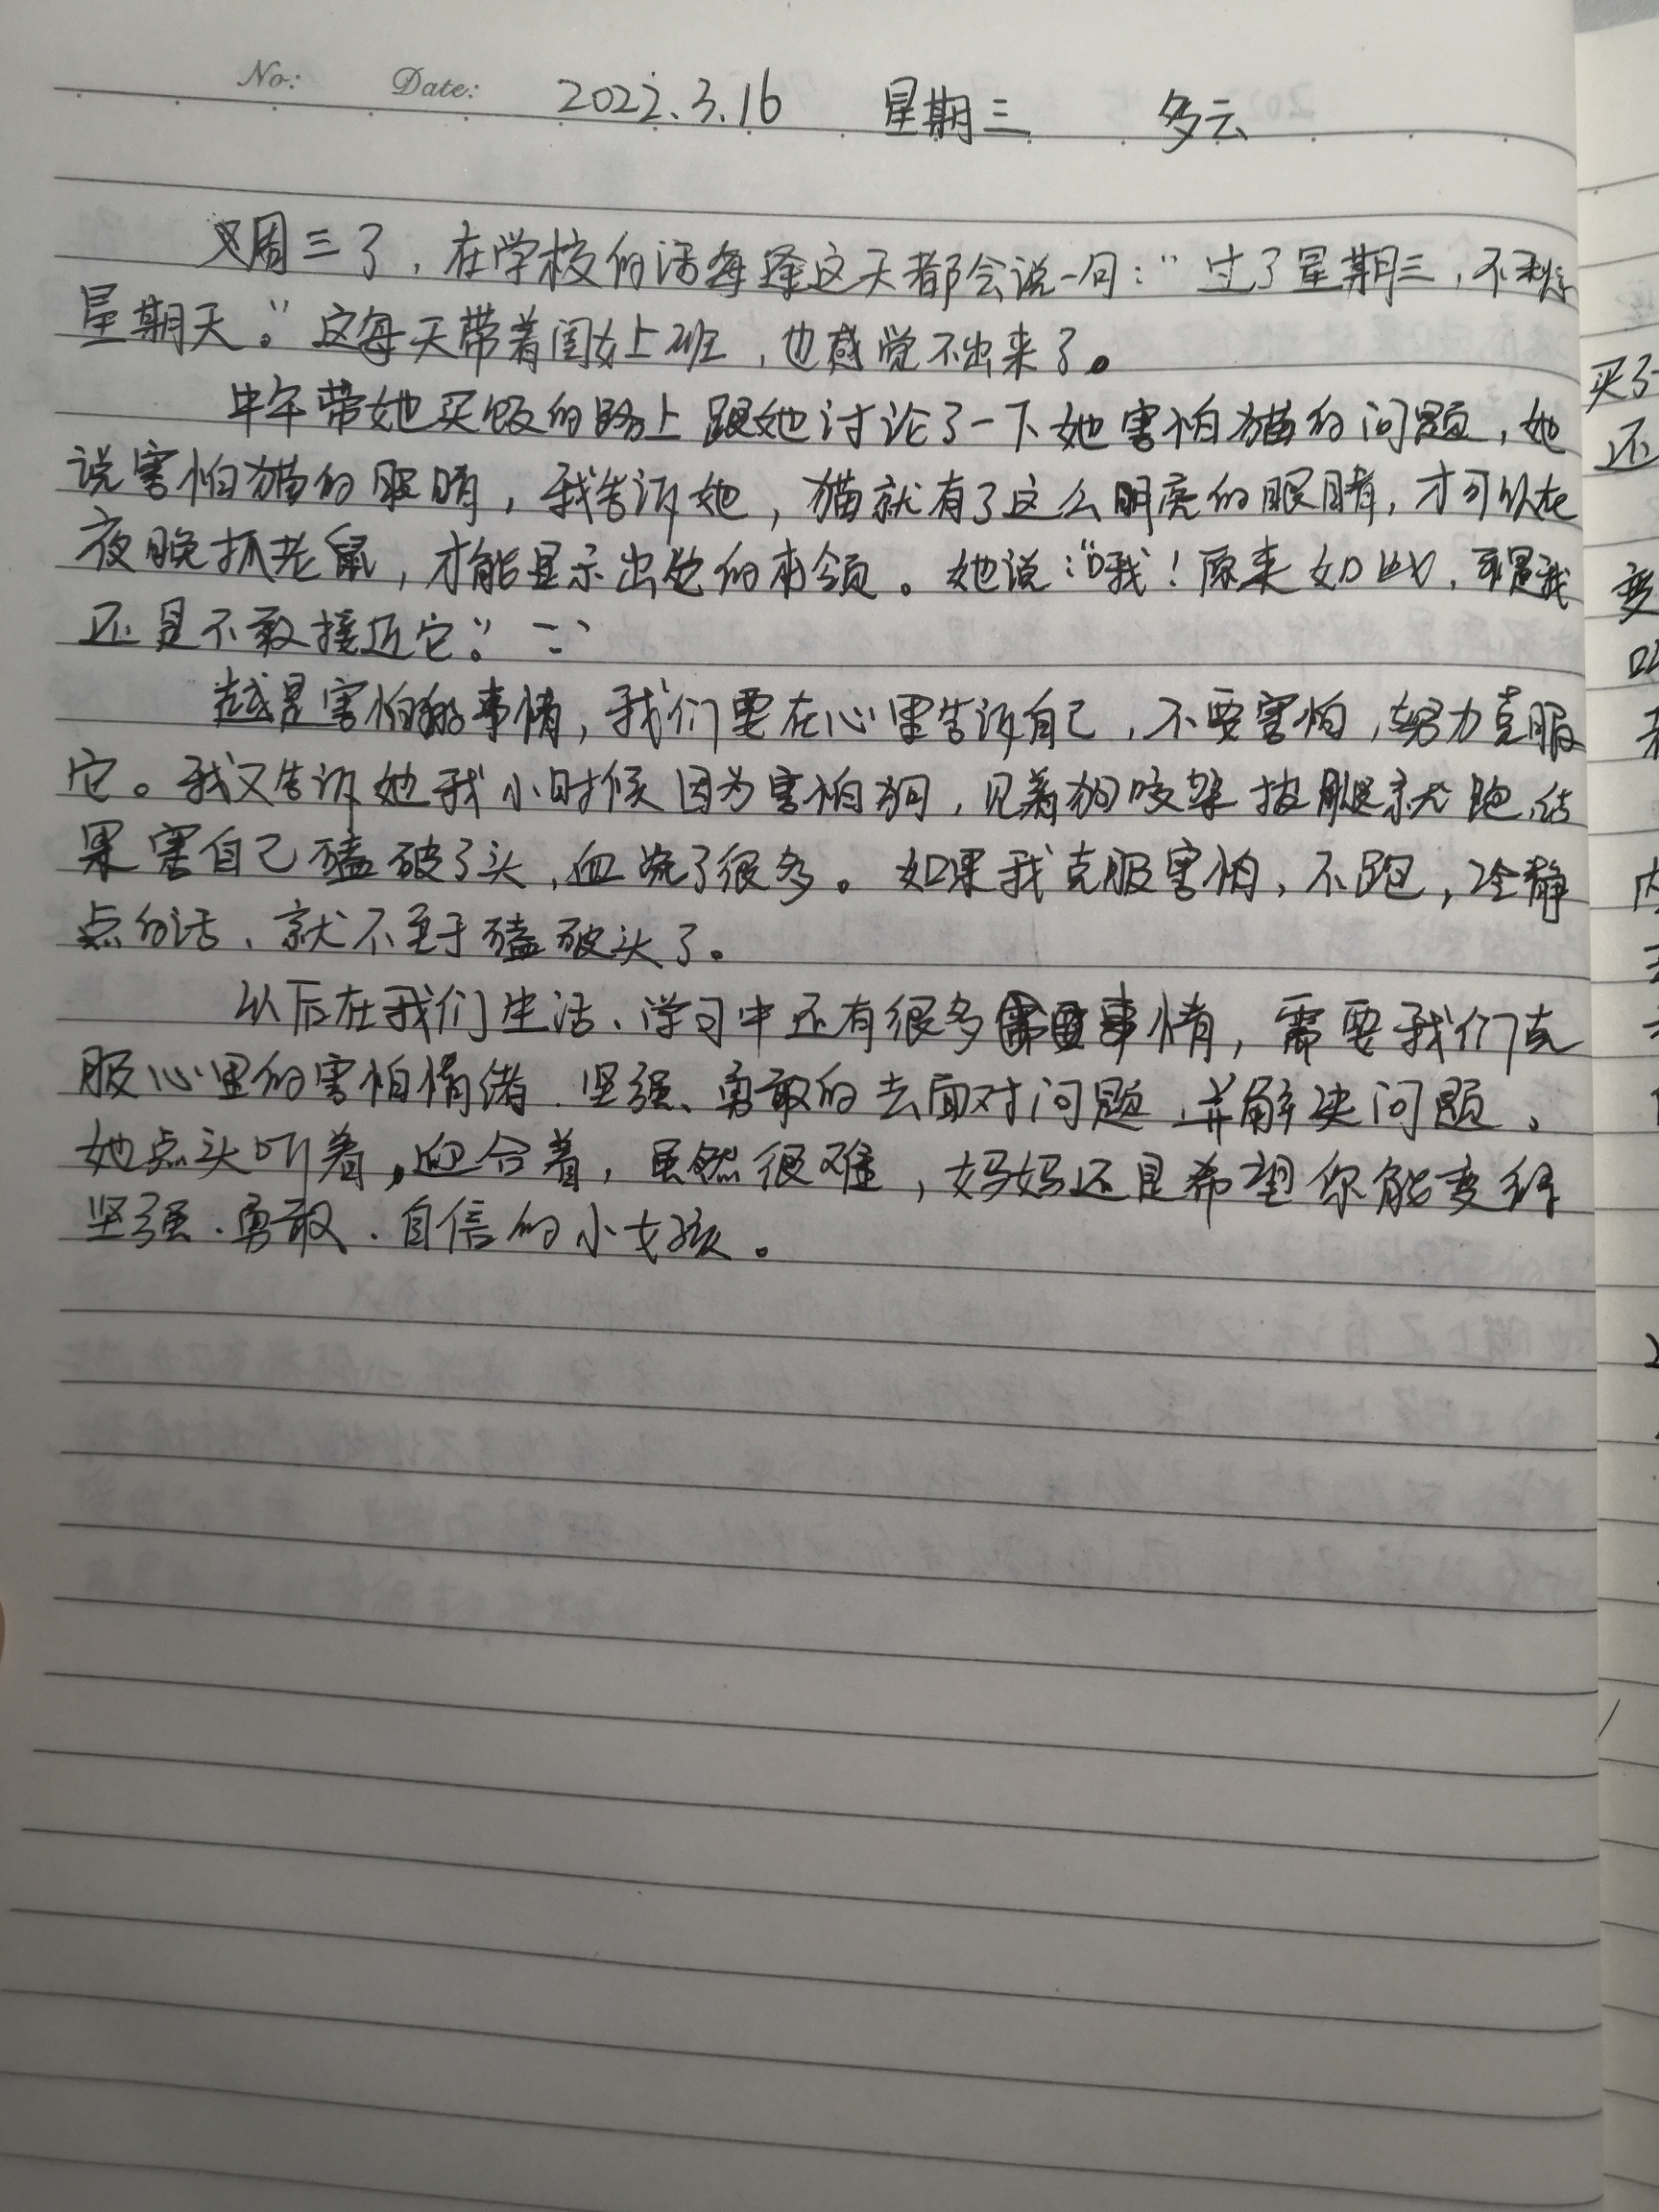 No: Date: 2022.3.16 星期三 多云
又周三了，在学校的话每逢这天都会说一句：“过了星期三，不剩
星期天。”这每天带着闺女上班，也感觉不出来了。
中午带她买饭的路上跟她讨论了一下她害怕猫的问题，她
说害怕猫的眼睛，我告诉她，猫就有了这么明亮的眼睛，才可以在
夜晚抓老鼠，才能显示出它的本领。她说：“哦！原来如此，可是我
还是不敢接近它。”
越是害怕的事情，我们要在心里告诉自己，不要害怕，努力克服
它。我又告诉她我小时候因为害怕狗，见着狗咬架拔腿就跑，结
果害自己磕破了头，血流了很多。如果我克服害怕，不跑，冷静
点的话、就不至于磕破头了。
以后在我们生活、学习中还有很多事情，需要我们克
服心里的害怕情绪、坚强、勇敢的去面对问题，并解决问题。
她点头听着，迎合着，虽然很难，妈妈还是希望你能变得
坚强、勇敢、自信的小女孩。
买了
还
变